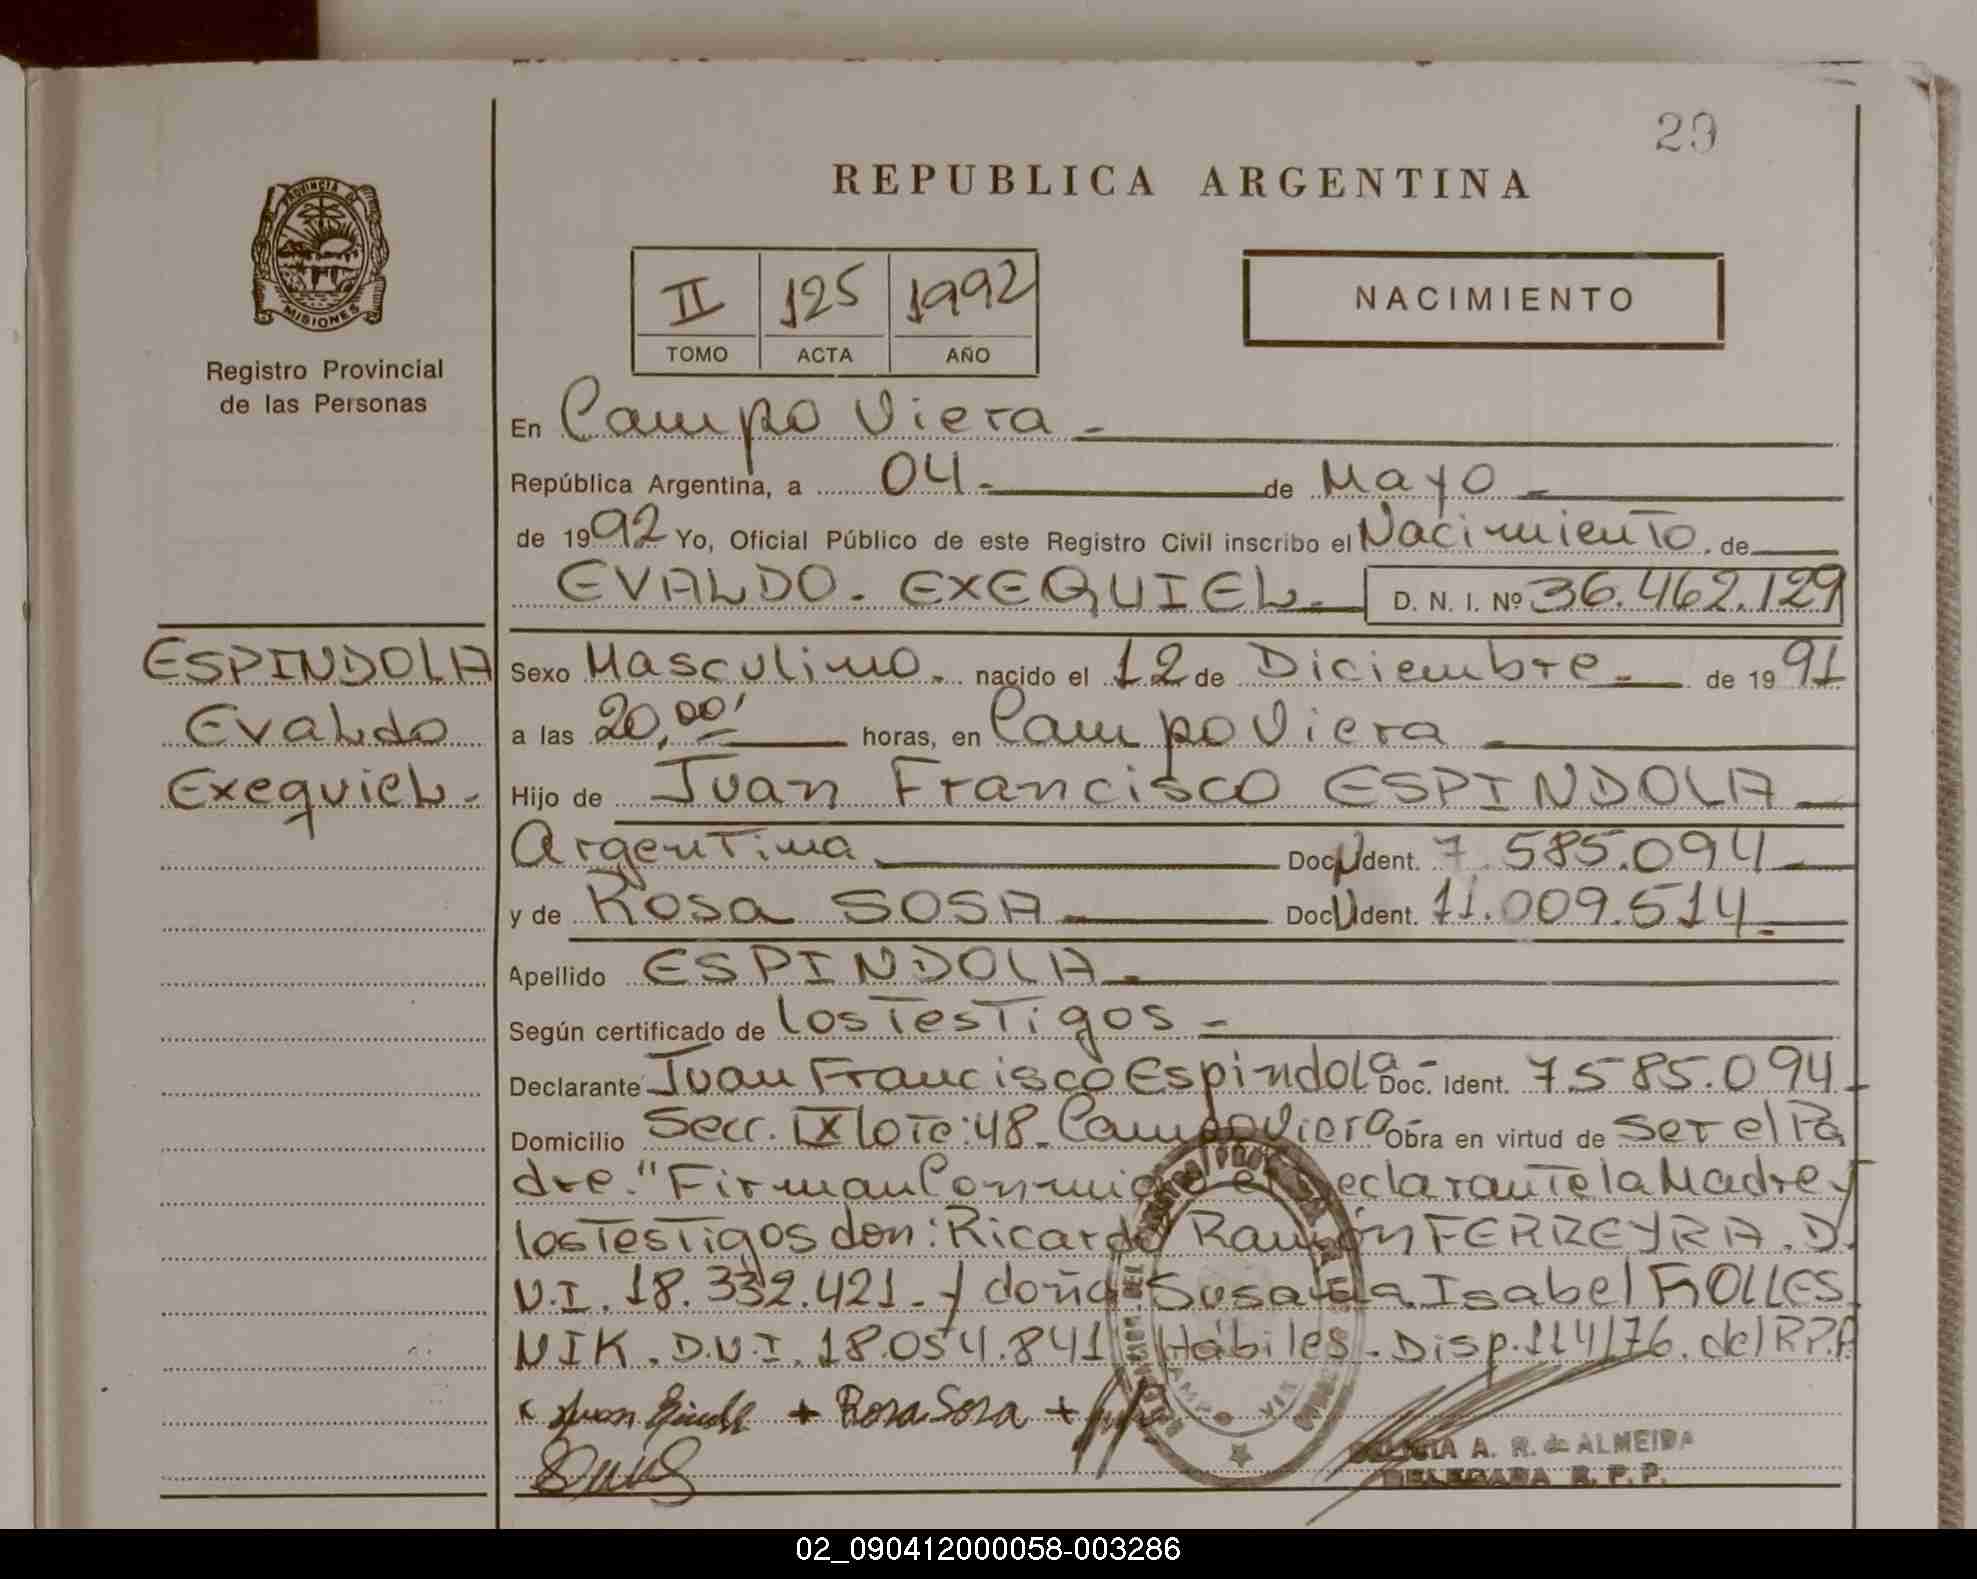 29
REPUBLICA ARGENTINA
PROVINCIA DE
MISIONES
Registro Provincial
de las Personas
II 125 1992
TOMO ACTA AÑO
NACIMIENTO
En Campo Viera -
República Argentina, a 04 - de Mayo -
de 1992 Yo, Oficial Público de este Registro Civil inscribo el Nacimiento. de
EVALDO. EXEQUIEL - D. N. I. Nº 36.462.129
ESPINDOLA
Evaldo
Exequiel -
Sexo Masculino. nacido el 12 de Diciembre - de 1991
a las 20,00' horas, en Campo Viera -
Hijo de Juan Francisco ESPINDOLA
Argentina Doc. Ident. 7.585.094 -
y de Rosa SOSA Doc. Ident. 11.009.514 -
Apellido ESPINDOLA -
Según certificado de los Testigos -
Declarante Juan Francisco Espindola - Doc. Ident. 7.585.094 -
Domicilio Secc. IX lote: 48 - Campo Viera Obra en virtud de ser el Pa
dre. "Firman Conmigo el Declarante la Madre y
los Testigos don: Ricardo Ramón FERREYRA. D.
N.I. 18.332.421 - y doña Susana Isabel
NIK. D.N.I. 18.054.841 Hábiles - Disp. 114/76. del R.P.P.
x Juan + Rosa Sosa +
A. R. de ALMEIDA
DELEGADA R. P. P.
02_090412000058-003286